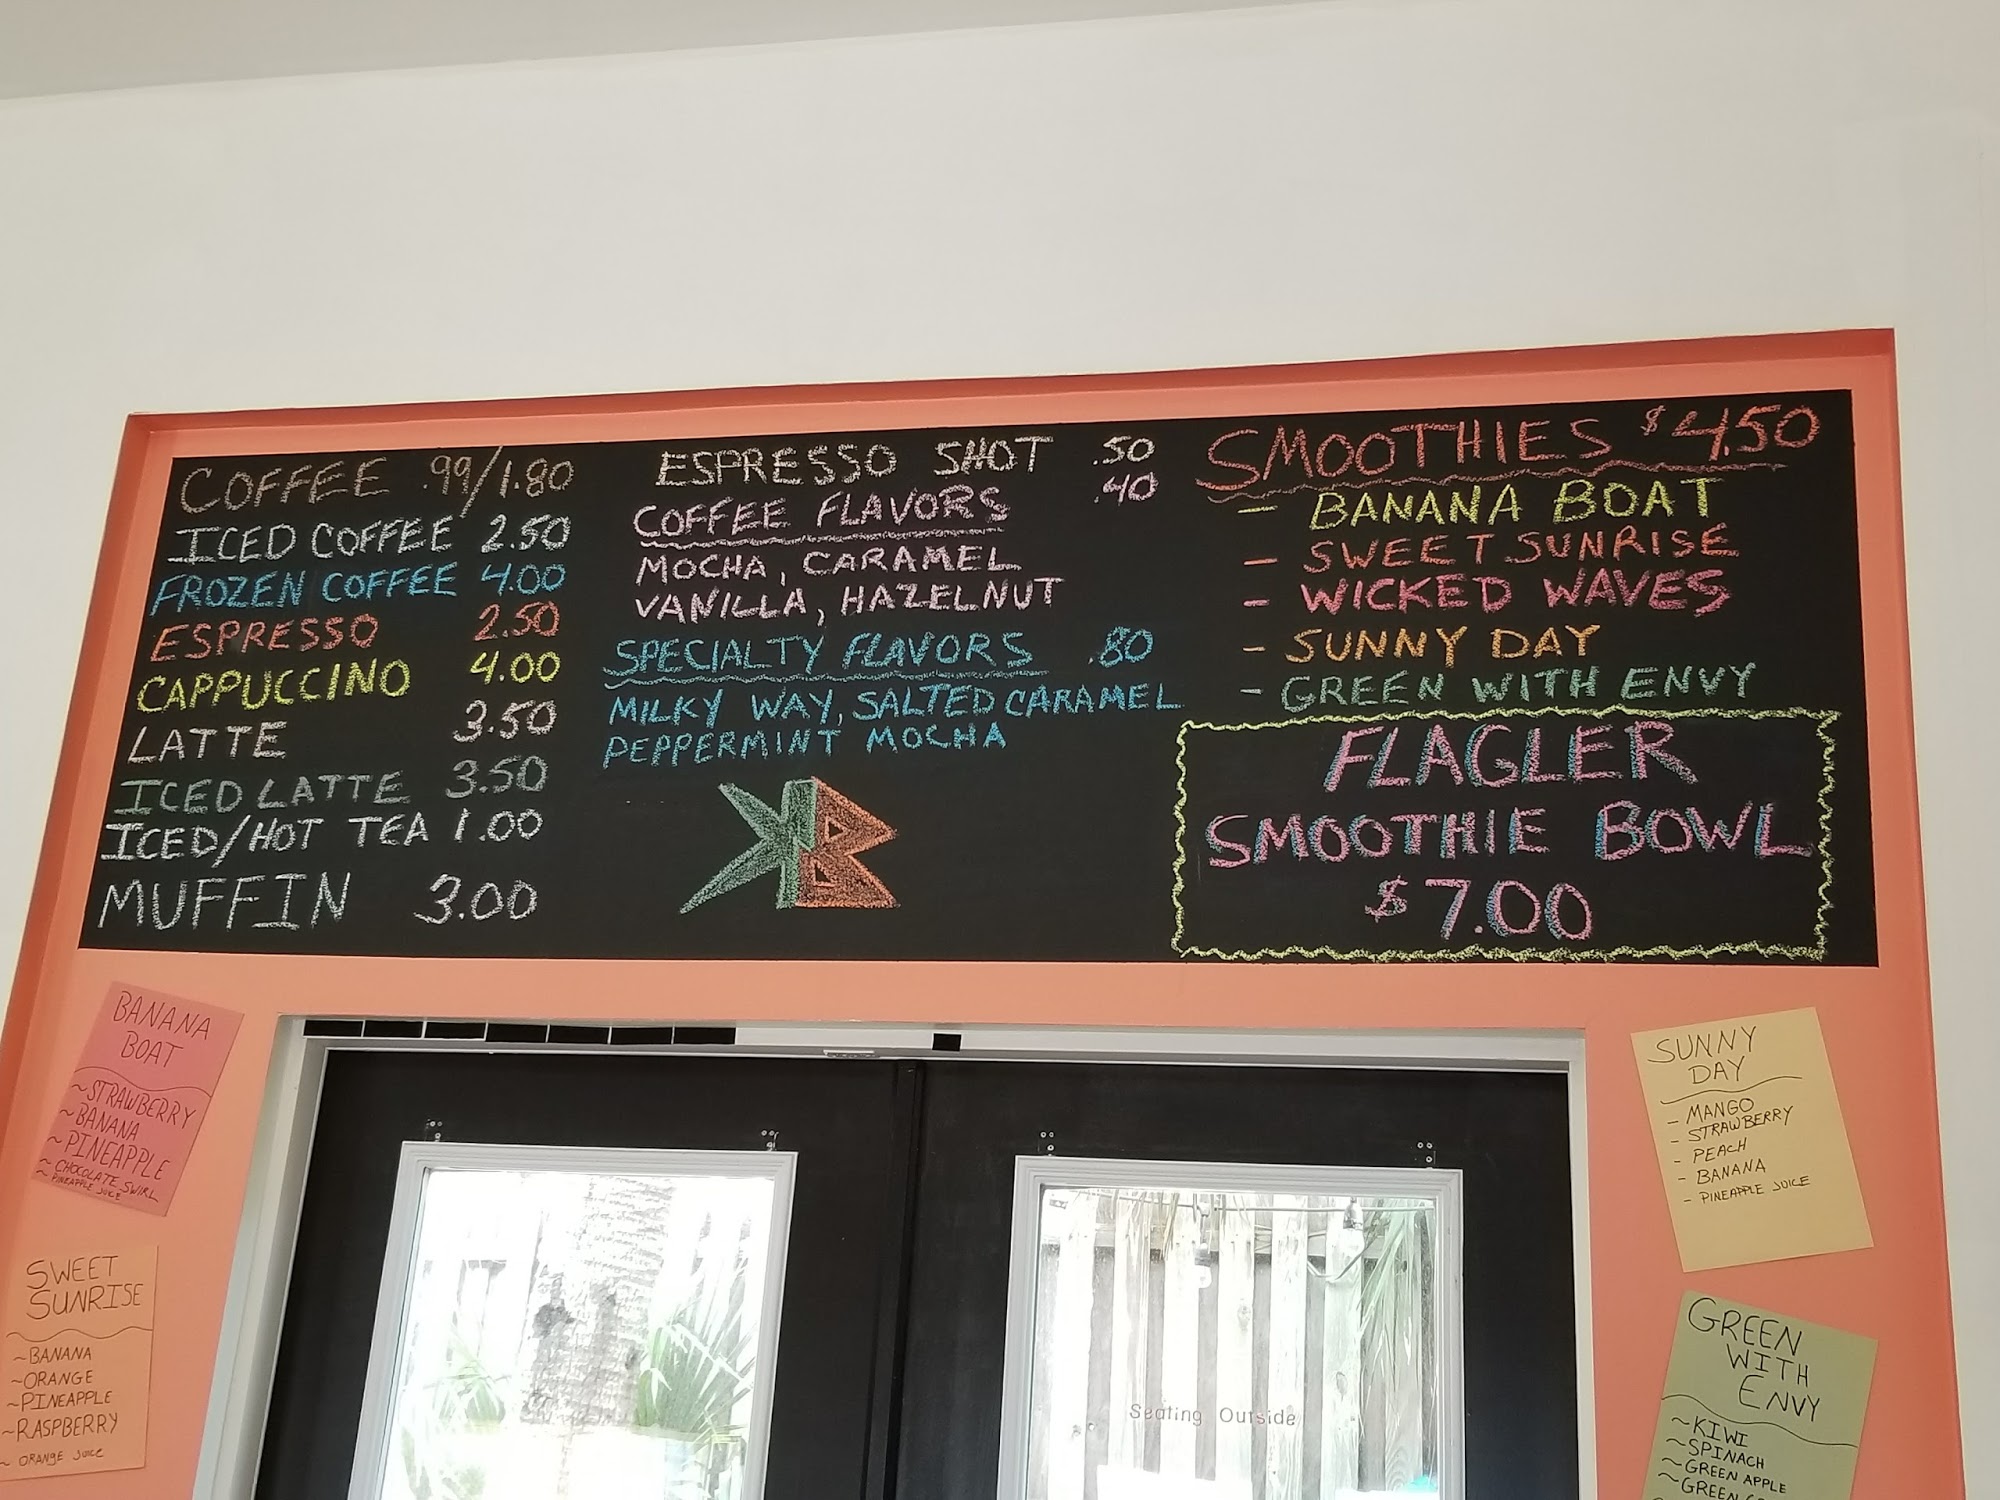 COFFEE .99/1.80
ICED COFFEE 2.50
FROZEN COFFEE 4.00
ESPRESSO 2.50
CAPPUCCINO 4.00
LATTE 3.50
ICED LATTE 3.50
ICED/HOT TEA 1.00
MUFFIN 3.00
ESPRESSO SHOT .50
COFFEE FLAVORS .40
MOCHA, CARAMEL
VANILLA, HAZELNUT
SPECIALTY FLAVORS .80
MILKY WAY, SALTED CARAMEL
PEPPERMINT MOCHA
KB
SMOOTHIES $4.50
- BANANA BOAT
- SWEET SUNRISE
- WICKED WAVES
- SUNNY DAY
- GREEN WITH ENVY
FLAGLER
SMOOTHIE BOWL
$7.00
BANANA
BOAT
~STRAWBERRY
~BANANA
~PINEAPPLE
~CHOCOLATE SWIRL
~PINEAPPLE JUICE
SWEET
SUNRISE
~BANANA
~ORANGE
~PINEAPPLE
~RASPBERRY
~ORANGE JUICE
SUNNY
DAY
- MANGO
- STRAWBERRY
- PEACH
- BANANA
- PINEAPPLE JUICE
GREEN
WITH
ENVY
~KIWI
~SPINACH
~GREEN APPLE
~GREEN
Seating Outside